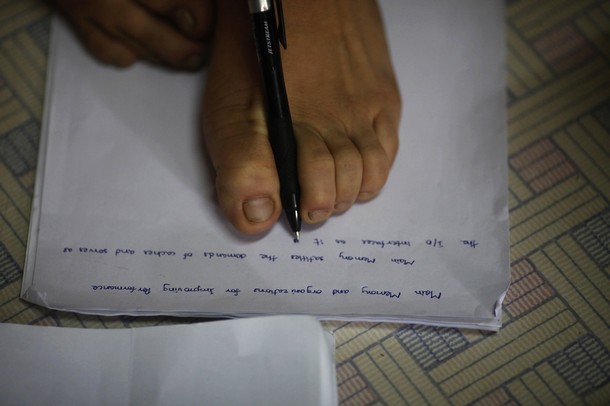 Main Memory and organizations for Improving Performance
Main Memory settles the demands of caches and serves as
the I/O interfaces as it